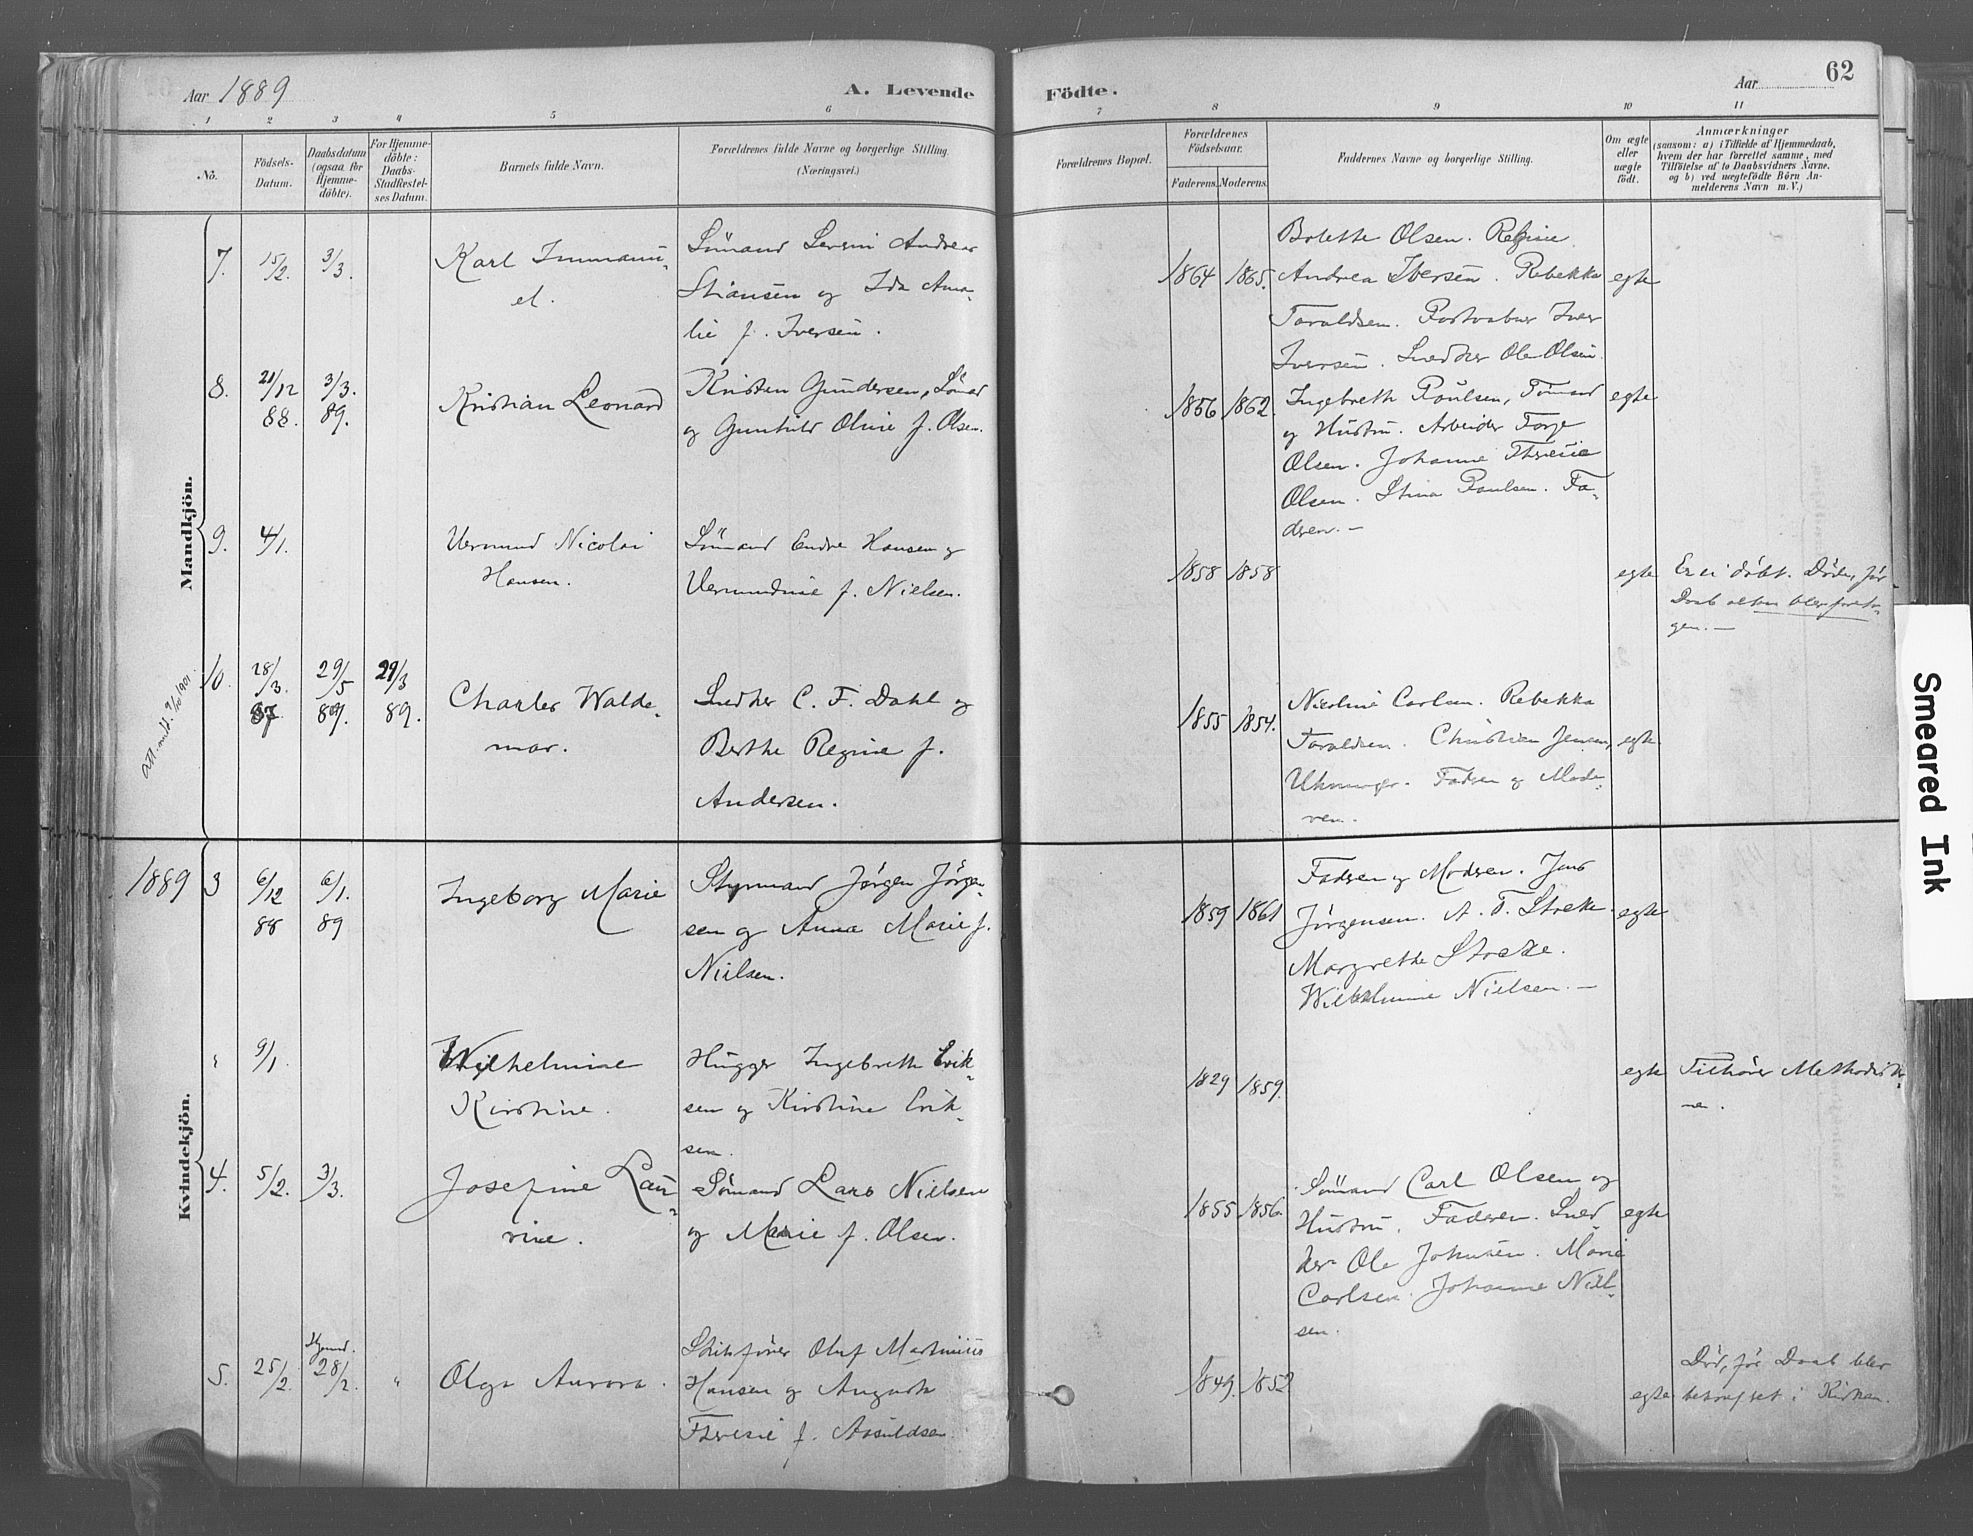 Aar 1889
A. Levende
Födte.
Aar
62
1 2 3 4 5 6 7 8 9 10 11
No.
Födsels-
Datum.
Daabsdatum
(ogsaa for
Hjemme-
döbte).
For Hjemme-
döbte:
Daabs-
Stadfæstel-
ses Datum.
Barnets fulde Navn.
Forældrenes fulde Navne og borgerlige Stilling.
(Næringsvei.)
Forældrenes Bopæl.
Forældrenes
Födselsaar.
Faderens. Moderens.
Faddernes Navne og borgerlige Stilling.
Om ægte
eller
uægte
födt.
Anmærkninger
(saasom: a) i Tilfælde af Hjemmedaab,
hvem der har forrettet samme, med
Tilföielse af to Daabsvidners Navne.
og b) ved uægtefödte Börn An-
melderens Navn m. V.)
Mandkjön.
7. 15/2. 3/3.
Karl Immanu-
el.
Sömand Severin Andreas
Stiansen og Ida Ama-
lie f. Iversen.
1864 1865.
Bolette Olsen. Regine
Andrea Iversen. Rebekka
Taraldsen. Postaabner Iver
Iversen. Snedker Ole Olsen.
egte
8. 21/12 3/3.
88. 89.
Kristian Leonard
Kristen Gundersen, Sömand
og Gunhild Oline f. Olsen.
1856 1862.
Ingebreth Paulsen, Tömmand
og Hustru. Arbeider Torje
Olsen. Johanne Therese
Olsen. Stina Paulsen. Fa-
deren. —
egte
9. 4/1.
Vermund Nicolai
Hansen.
Sömand Endre Hansen og
Vermundine f. Nielsen.
1858 1858
egte
Er ei döbt. Döde, för
Daab alton blev foreta-
gen. —
10. 28/3. 29/5 29/3
87 89. 89.
Att. mil. 9/10 1901
Charles Walde-
mar.
Snedker C. F. Dahl og
Berthe Regine f.
Andersen.
1855 1854.
Nicoline Carlsen. Rebekka
Taraldsen. Christian Jensen,
Uhrmager. Fadren og Mode-
ren.
egte
Kvindekjön.
1889 3 6/12 6/1.
88 89
Ingeborg Marie
Styrmand Jörgen Jörgen-
sen og Anna Marie f.
Nielsen.
1859 1861
Fadren og Modren. Jens
Jörgensen. A. T. Stræke.
Margrethe Stræke.
Wilhelmine Nielsen. —
egte
" 9/1
Wilhelmine
Kirstine.
Hugger Ingebreth Erik-
sen og Kirstine Erik-
sen.
1829 1859.
egte
Tilhörer Methodister-
ne.
4. 5/2. 3/3.
Josefine Lau-
rine.
Sömand Lars Nielsen
og Marie f. Olsen.
1855 1856.
Sömand Carl Olsen og
Hustru. Faderen. Sned
ker Ole Johnsen. Marie
Carlsen. Johanne Niel-
sen.
egte
5. 25/2. Hjemmd. 28/2. "
Olga Aurora.
Skibsförer Oluf Martinius
Hansen og Augusta
Therese f. Aasuldsen.
1849. 1852
egte
Död, för Daab blev
bekræftet i Kirken.
Smeared Ink